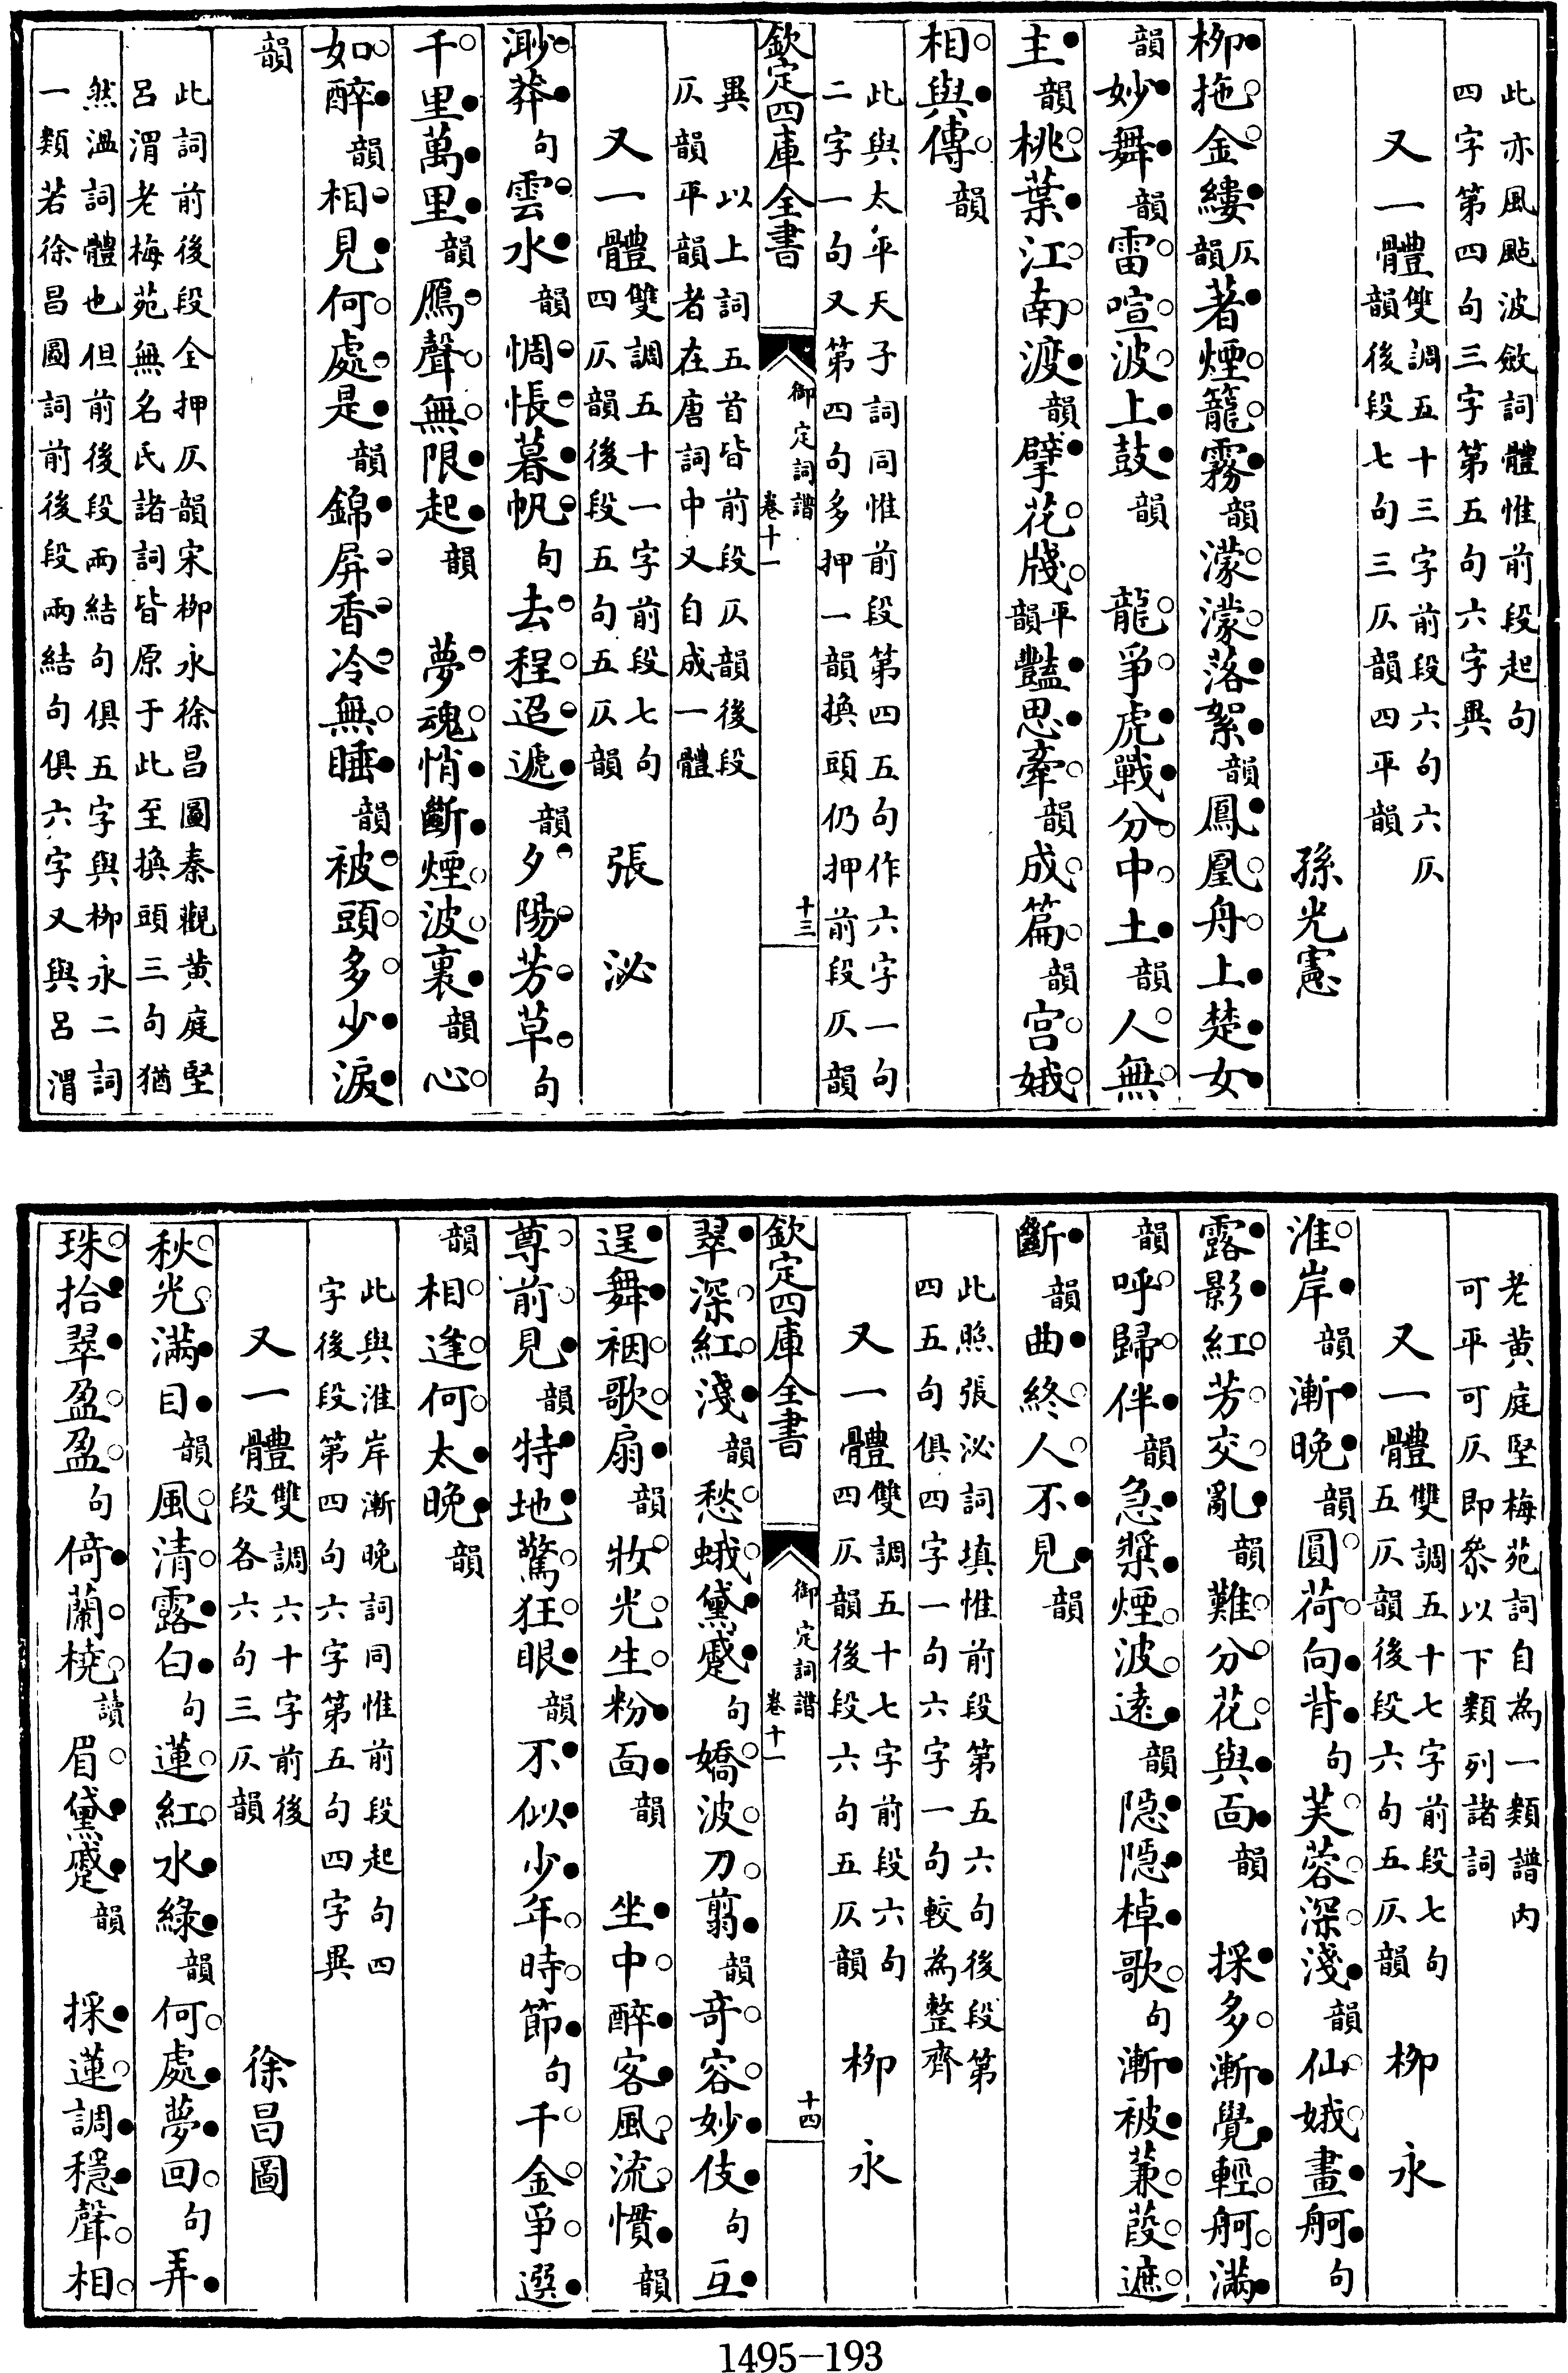 此亦風颭波斂詞體惟前段起句
四字第四句三字第五句六字異
又一體雙調五十三字前段六句六仄
韻後段七句三仄韻四平韻
孫光憲
柳拖金縷仄韻著煙籠霧韻濛濛落絮韻鳳凰舟上楚女
韻妙舞韻雷喧波上鼓韻　龍爭虎戰分中土韻人無
主韻桃葉江南渡韻擘花牋平韻豔思牽韻成篇韻宮娥
相與傳韻
此與太平天子詞同惟前段第四五句作六字一句
二字一句又第四句多押一韻換頭仍押前段仄韻
欽定四庫全書
御定詞譜
卷十一
十三
異　以上詞五首皆前段仄韻後段
仄韻平韻者在唐詞中又自成一體
又一體雙調五十一字前段七句
四仄韻後段五句五仄韻　張泌
渺莽句雲水韻惆悵暮帆句去程迢遞韻夕陽芳草句
千里萬里韻鴈聲無限起韻　夢魂悄斷煙波裏韻心
如醉韻相見何處是韻錦屏香冷無睡韻被頭多少淚
韻
此詞前後段全押仄韻宋柳永徐昌圖秦觀黃庭堅
呂渭老梅苑無名氏諸詞皆原于此至換頭三句猶
然溫詞體也但前後段兩結句俱五字與柳永二詞
一類若徐昌圖詞前後段兩結句俱六字又與呂渭
老黃庭堅梅苑詞自為一類譜內
可平可仄即參以下類列諸詞
又一體雙調五十七字前段七句
五仄韻後段六句五仄韻　柳永
淮岸韻漸晚韻圓荷向背句芙蓉深淺韻仙娥畫舸句
露影紅芳交亂韻難分花與面韻　採多漸覺輕舸滿
韻呼歸伴韻急槳煙波遠韻隱隱棹歌句漸被蒹葭遮
斷韻曲終人不見韻
此照張泌詞填惟前段第五六句後段第
四五句俱四字一句六字一句較為整齊
又一體雙調五十七字前段六句
四仄韻後段六句五仄韻　柳永
欽定四庫全書
御定詞譜
卷十一
十四
翠深紅淺韻愁蛾黛蹙句嬌波刀翦韻奇容妙伎句互
逞舞裀歌扇韻妝光生粉面韻　坐中醉客風流慣韻
尊前見韻特地驚狂眼韻不似少年時節句千金爭選
韻相逢何太晚韻
此與淮岸漸晚詞同惟前段起句四
字後段第四句六字第五句四字異
又一體雙調六十字前後
段各六句三仄韻　徐昌圖
秋光滿目韻風清露白句蓮紅水綠韻何處夢回句弄
珠拾翠盈盈句倚蘭橈讀眉黛蹙韻　採蓮調穩聲相
1495-193